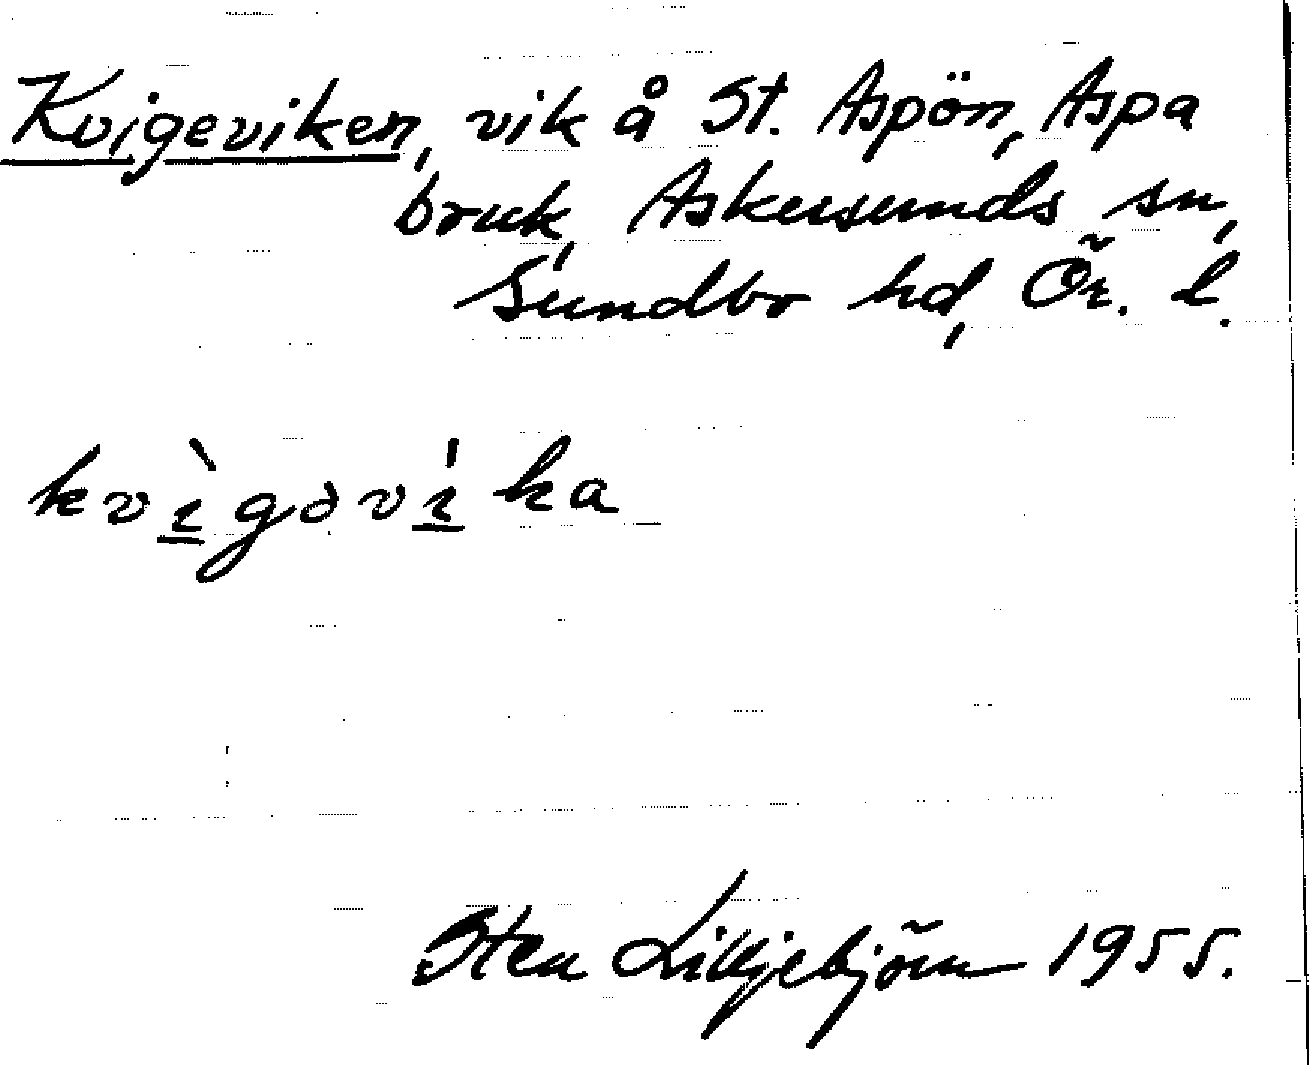 Kvigeviken, vik å St. Aspön, Aspa
bruk, Askersunds sn,
Sundbo hd, Ör. l.
kvìgəvíka
Sten Lilljebjörn 1955.